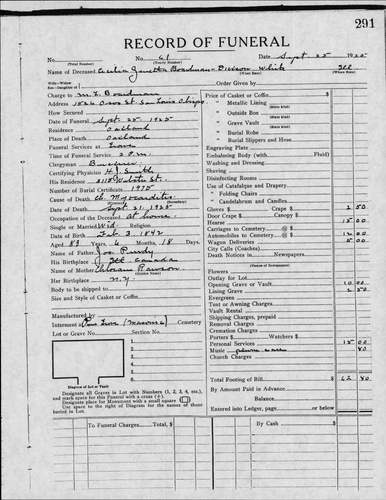 291
RECORD OF FUNERAL
No. No. 61 Date Sept. 25 1925
(Total Number) (Yearly Number)
Name of Deceased Cecilia Boardman - Divorced White Ill.
(What Race) (Where Born)
Order Given by
Charge to M. L. Boardman
Address 1526 Osos St. San Luis Obispo
How Secured
Date of Funeral Sept. 25 1925
Residence Oakland
Place of Death Oakland
Funeral Services at Grave
Time of Funeral Service 2 P.M.
Clergyman
Certifying Physician H. J. Smith
His Residence 2115 Webster St.
Number of Burial Certificate 1975
Cause of Death Ch. Myocarditis
Date of Death Sept. 21, 1925
Occupation of the Deceased at home
Single or Married Wid. Religion
Date of Birth Feb. 3 1842
Aged 83 Years, 6 Months, 18 Days.
Name of Father Jos. Purdy
His Birthplace Canada
Name of Mother Rawson
(Maiden Name)
Her Birthplace N.Y.
Body to be shipped to
Size and Style of Casket or Coffin
Manufactured by
Interment (Masonic) Cemetery
Lot or Grave No. Section No.
1.
2.
3.
4.
5.
6.
7.
Diagram of Lot or Vault
Designate all Graves in Lot with Numbers (1, 2, 3, 4, etc.),
and mark space for this Funeral with a cross (+).
Designate place for Monument with a small square
Use space to the right of Diagram for the names of those
buried in Lot.
To Funeral Charges Total, $
Price of Casket or Coffin
" Metallic Lining
(State kind)
" Outside Box
(State kind)
" Grave Vault
(State kind)
" Burial Robe
(State kind)
" Burial Slippers and Hose
Engraving Plate
Embalming Body (with Fluid)
Washing and Dressing
Shaving
Disinfecting Rooms
Use of Catafalque and Drapery
" Folding Chairs
" Candelabrum and Candles
Gloves $ Crape $ 2 50
Door Crape $ Canopy $
Hearse 15 00
Carriages to Cemetery @ $
Automobiles to Cemetery @ $ 12 00
Wagon Deliveries 5 00
City Calls (Coaches)
Death Notices in Newspapers
(Names of Newspapers)
Flowers
Outlay for Lot
Opening Grave or Vault 10 00
Lining Grave 2 50
Evergreen
Tent or Awning Charges
Vault Rental
Shipping Charges, prepaid
Removal Charges
Cremation Charges
Porters $ Watchers $
Personal Services 15 00
Music phone 80
Church Charges
Total Footing of Bill $ 62 80
By Amount Paid in Advance
Balance
Entered into Ledger, page or below
By Cash $